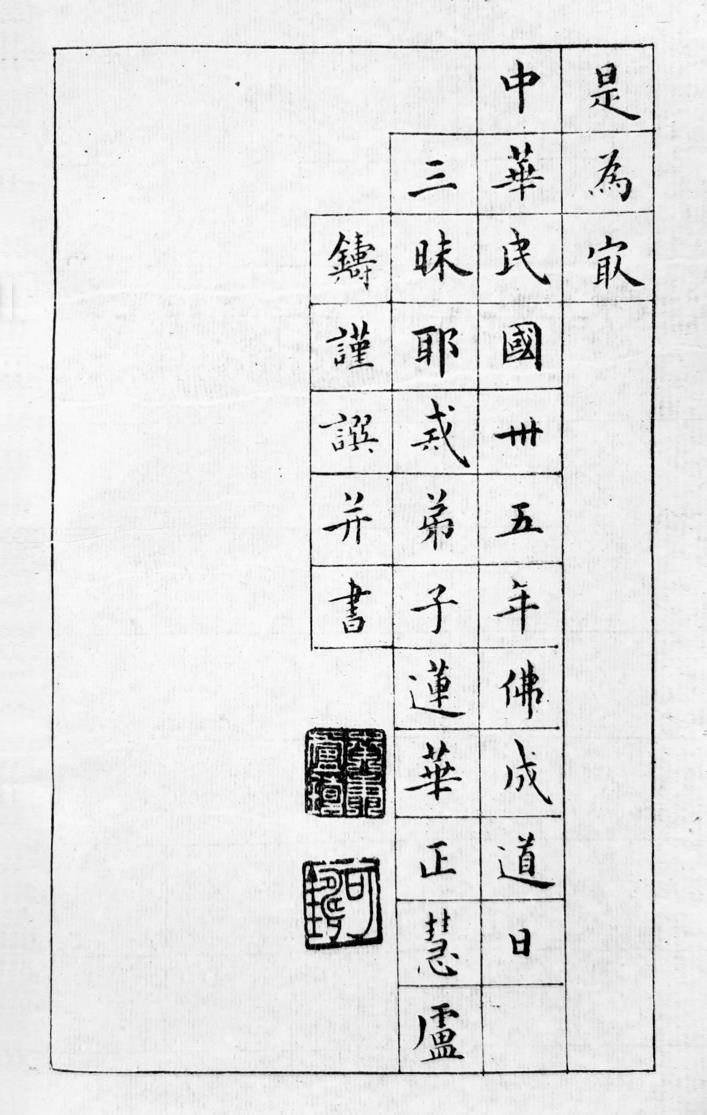 是為㝡
中華民國卅五年佛成道日
三昧耶戒弟子蓮華正慧盧
鑄謹譔并書